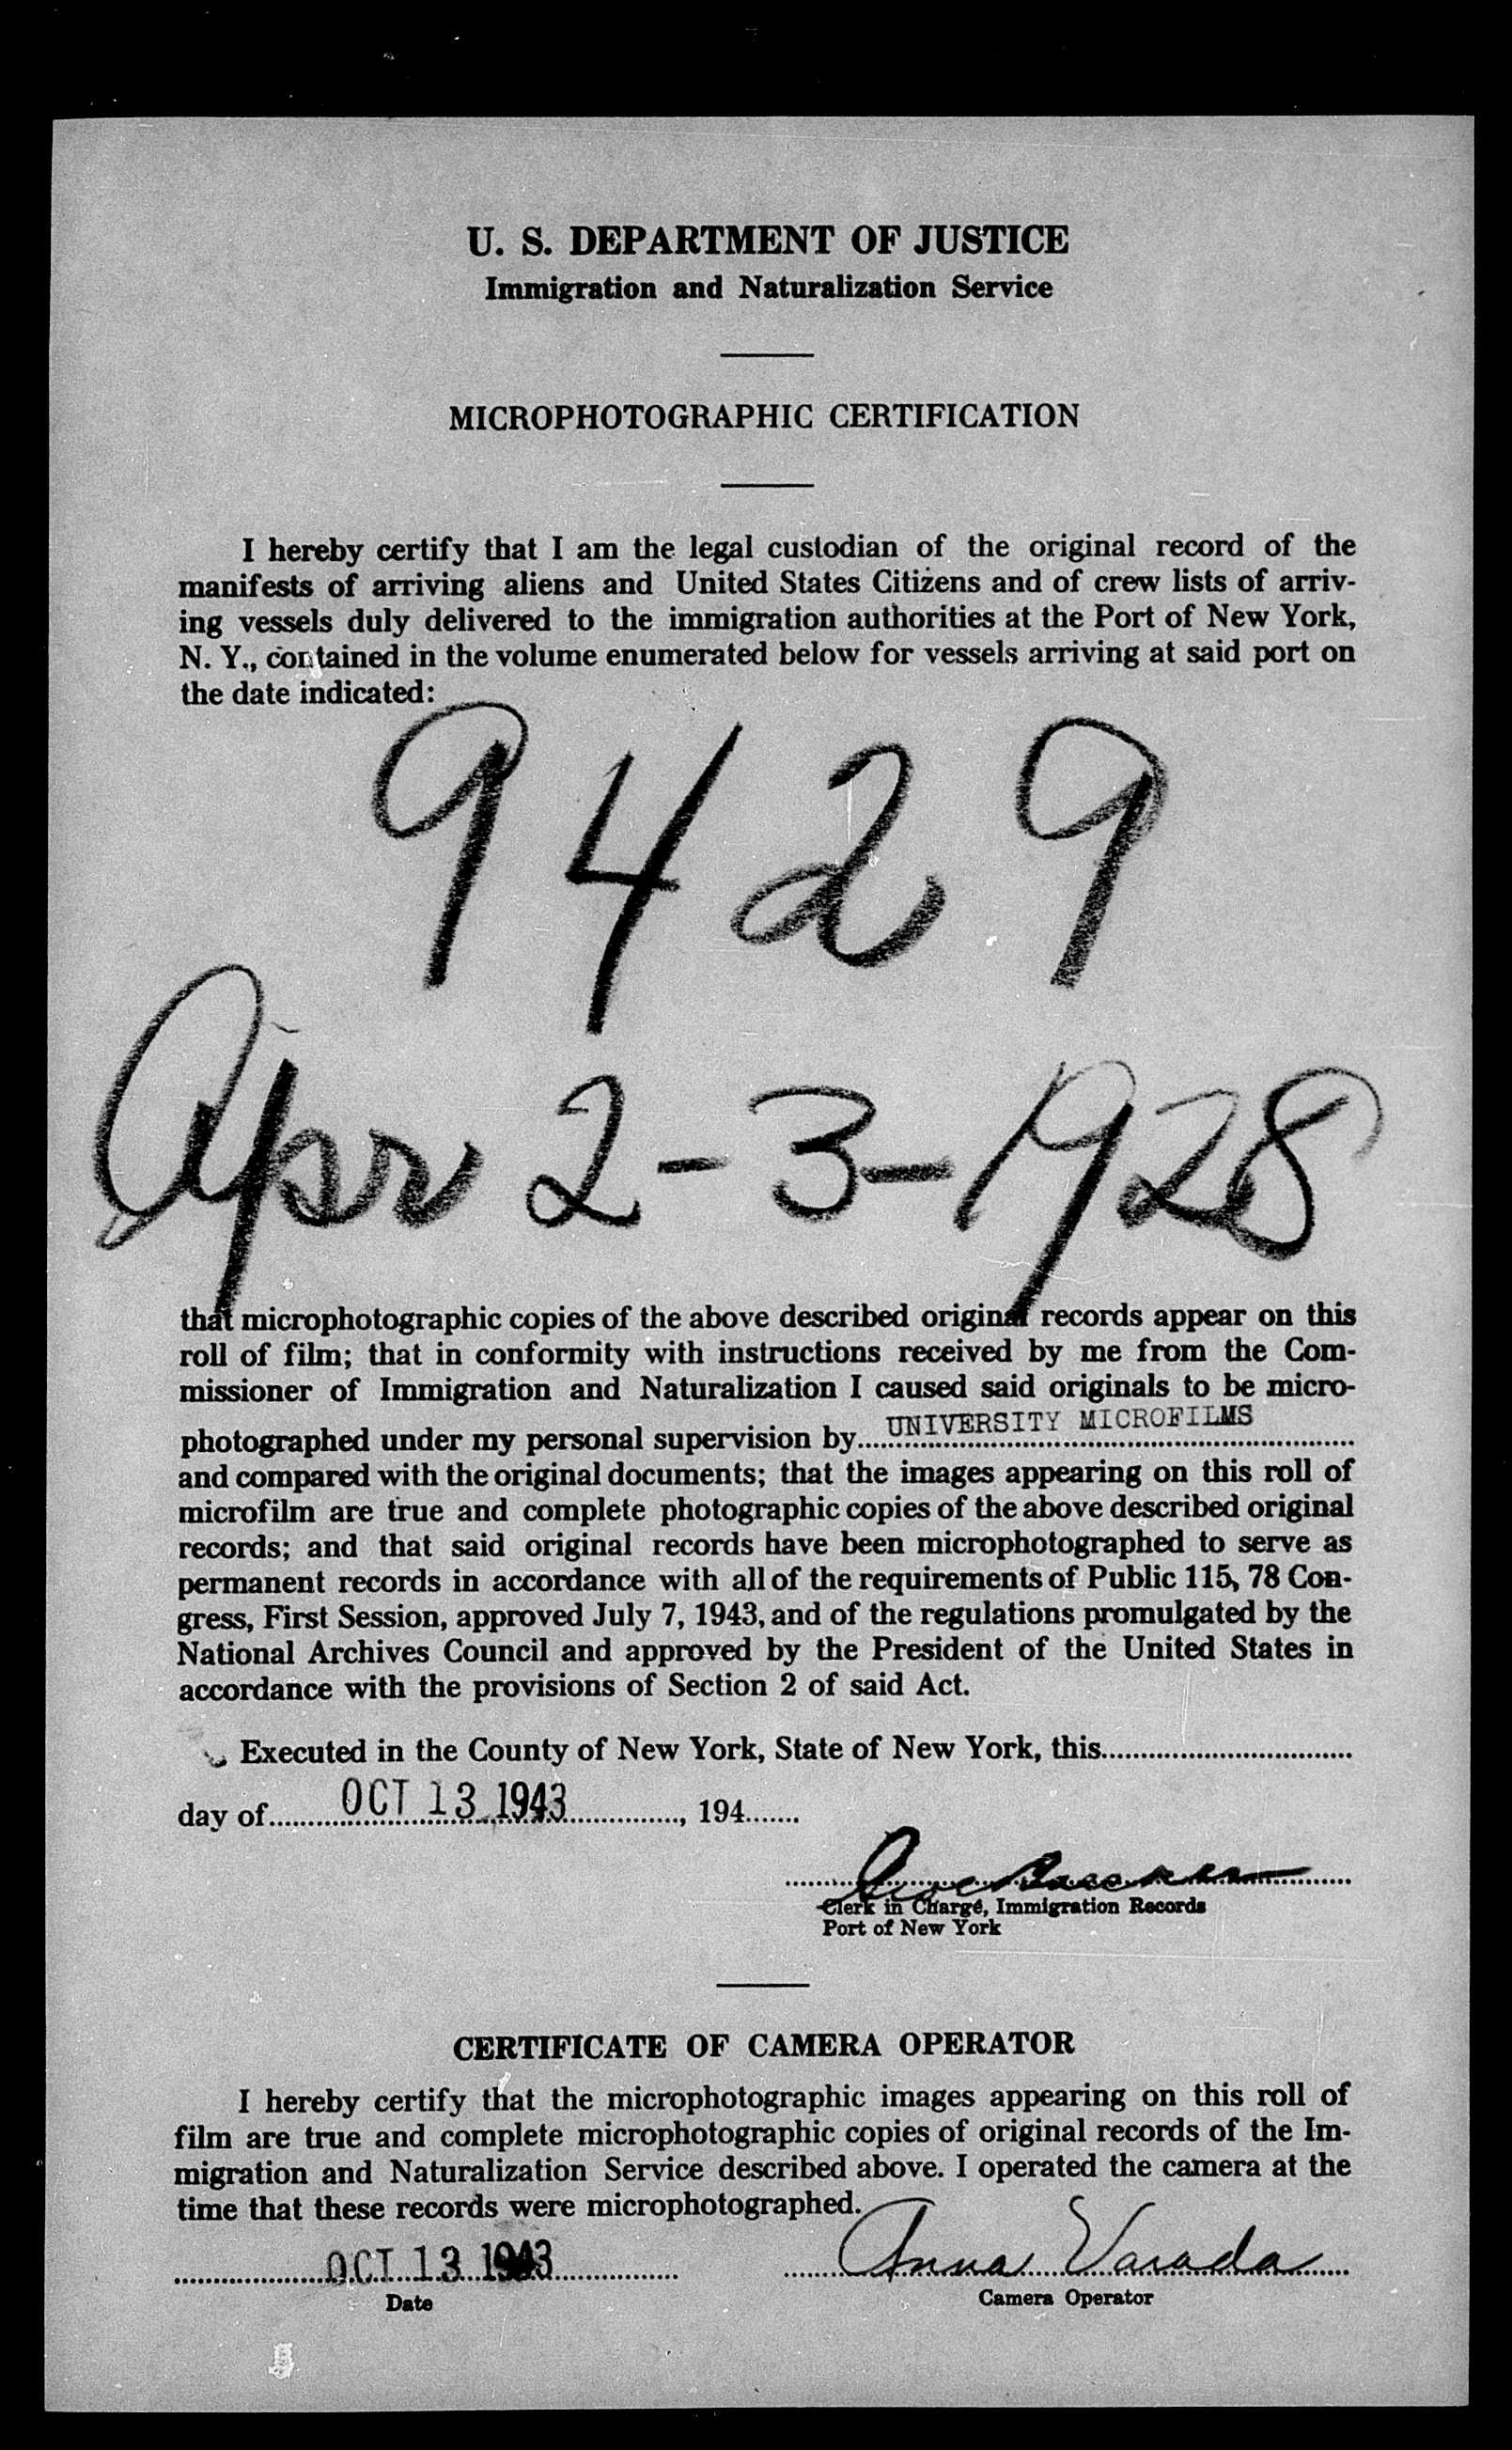 U. S. DEPARTMENT OF JUSTICE
Immigration and Naturalization Service
MICROPHOTOGRAPHIC CERTIFICATION
I hereby certify that I am the legal custodian of the original record of the
manifests of arriving aliens and United States Citizens and of crew lists of arriv-
ing vessels duly delivered to the immigration authorities at the Port of New York,
N. Y., contained in the volume enumerated below for vessels arriving at said port on
the date indicated:
9429
Apr 2-3-1928
that microphotographic copies of the above described original records appear on this
roll of film; that in conformity with instructions received by me from the Com-
missioner of Immigration and Naturalization I caused said originals to be micro-
photographed under my personal supervision by UNIVERSITY MICROFILMS
and compared with the original documents; that the images appearing on this roll of
microfilm are true and complete photographic copies of the above described original
records; and that said original records have been microphotographed to serve as
permanent records in accordance with all of the requirements of Public 115, 78 Con-
gress, First Session, approved July 7, 1943, and of the regulations promulgated by the
National Archives Council and approved by the President of the United States in
accordance with the provisions of Section 2 of said Act.
Executed in the County of New York, State of New York, this
day of OCT 13 1943, 194
Clerk in Charge, Immigration Records
Port of New York
CERTIFICATE OF CAMERA OPERATOR
I hereby certify that the microphotographic images appearing on this roll of
film are true and complete microphotographic copies of original records of the Im-
migration and Naturalization Service described above. I operated the camera at the
time that these records were microphotographed.
OCT 13 1943 Anna Varada
Date Camera Operator